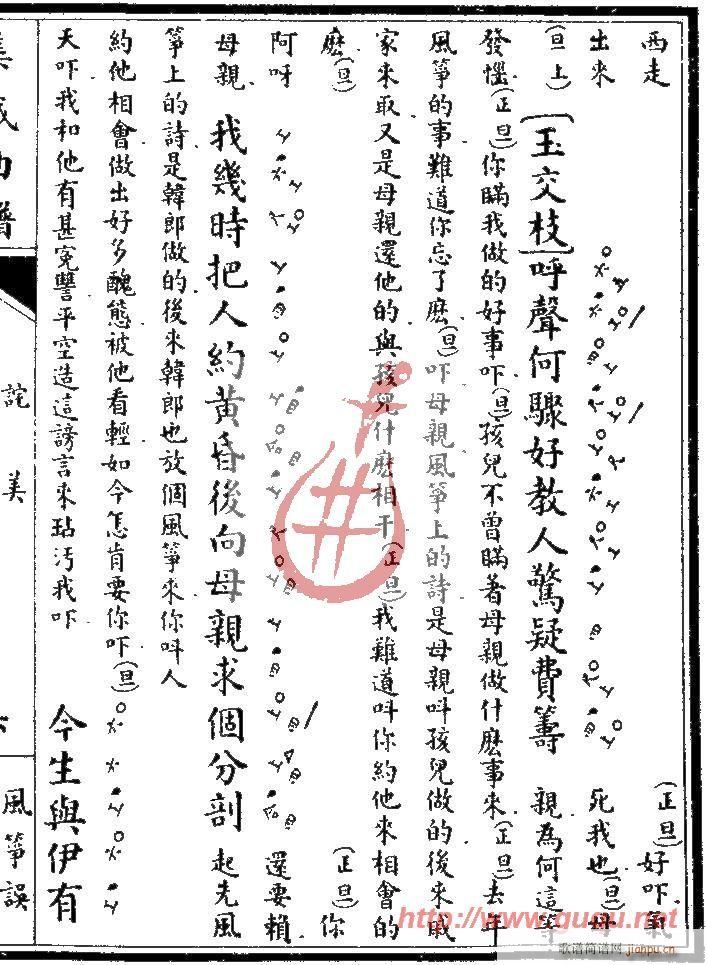 西走 (正旦)好吓氣
出來 死我也(旦)母
(旦上)【玉交枝】呼聲何驟好教人驚疑費籌 親為何這等
發惱(正旦)你瞞我做的好事吓(旦)孩兒不曾瞞著母親做什麽事來(正旦)去年
風箏的事難道你忘了麽(旦)吓母親風箏上的詩是母親呌孩兒做的後來戚
家來取又是母親還他的與孩兒什麽相干(正旦)我難道呌你約他來相會的
麽(旦) (正旦)你
阿呀 還要賴
母親 我幾時把人約黃昏後向母親求個分剖 起先風
箏上的詩是韓郎做的後來韓郎也放個風箏來你呌人
約他相會做出好多醜態被他看輕如今怎肯要你吓(旦)
天吓我和他有甚寃讐平空造這謗言來玷汚我吓 今生與伊有
集成曲譜
詫美
風箏誤
http://www.ququ.net
歌谱简谱网
jianpu.cn